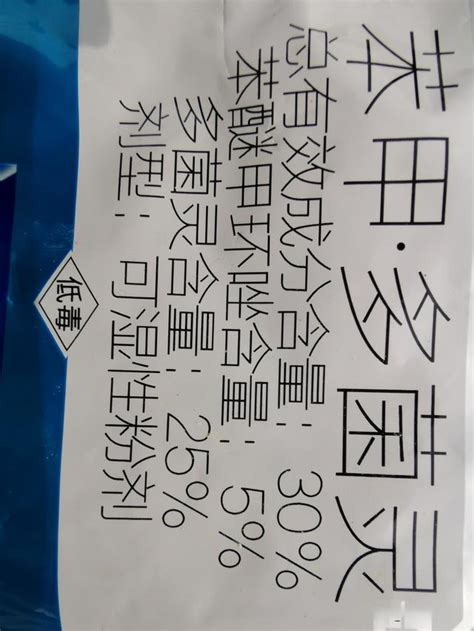 苯甲·多菌灵
总有效成分含量：30%
苯醚甲环唑含量：5%
多菌灵含量：25%
剂型：可湿性粉剂
低毒